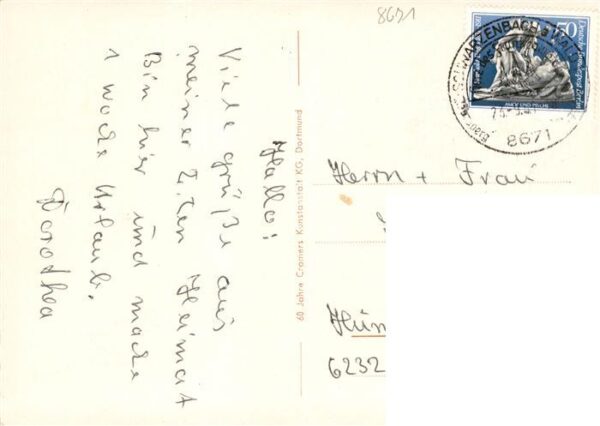 8671
Hallo!
Viele grüße aus
meiner 2.ten Heimat
Bin hier und mache
1 Woche Urlaub.
Dorothea
60 Jahre Cramers Kunstanstalt KG, Dortmund
50
Deutsche Bundespost Berlin
SCHWARZENBACH a WALD
8671
Herrn + Frau
Hün
6232